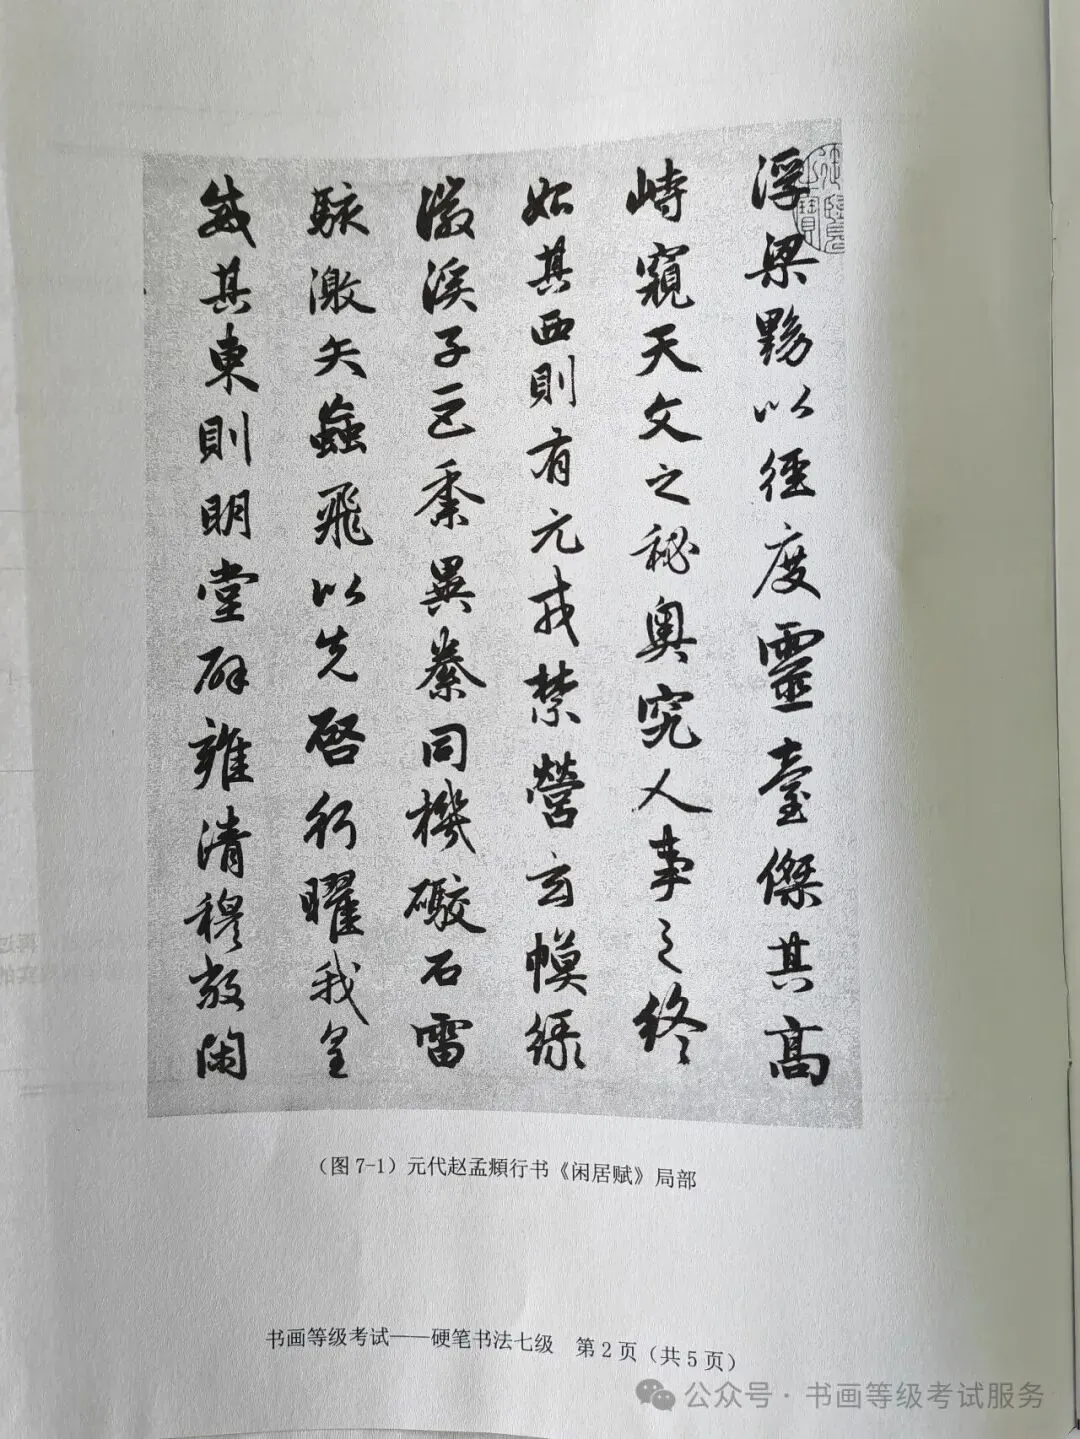 浮梁黝以徑度靈臺傑其高
峙窺天文之秘奧究人事之終
始其西則有元戎禁營玄幙綠
徽溪子巨黍異絭同機礮石雷
駭激矢蝱飛以先啓行曜我皇
威其東則明堂辟雍清穆敞閑
（图 7-1）元代赵孟頫行书《闲居赋》局部
书画等级考试——硬笔书法七级 第 2 页（共 5 页）
公众号·书画等级考试服务